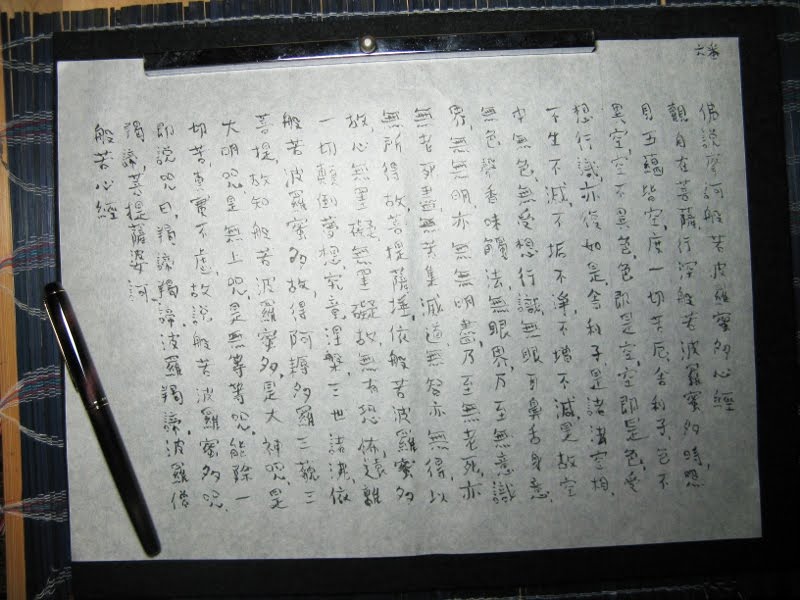 六番
佛說摩訶般若波羅蜜多心經
觀自在菩薩,行深般若波羅蜜多時,照
見五蘊皆空,度一切苦厄,舍利子,色不
異空,空不異色,色即是空,空即是色,受
想行識,亦復如是,舍利子,是諸法空相,
不生不滅,不垢不淨,不增不減,是故空
中無色,無受想行識,無眼耳鼻舌身意,
無色聲香味觸法,無眼界,乃至無意識
界,無無明,亦無無明盡,乃至無老死,亦
無老死盡,無苦集滅道,無智亦無得,以
無所得故,菩提薩埵,依般若波羅蜜多
故,心無罣礙,無罣礙故,無有恐怖,遠離
一切顛倒夢想,究竟涅槃,三世諸佛,依
般若波羅蜜多故,得阿耨多羅三藐三
菩提,故知般若波羅蜜多,是大神咒,是
大明咒,是無上咒,是無等等咒,能除一
切苦,真實不虛,故說般若波羅蜜多咒,
即說咒曰,羯諦羯諦,波羅羯諦,波羅僧
羯諦,菩提薩婆訶,
般若心經